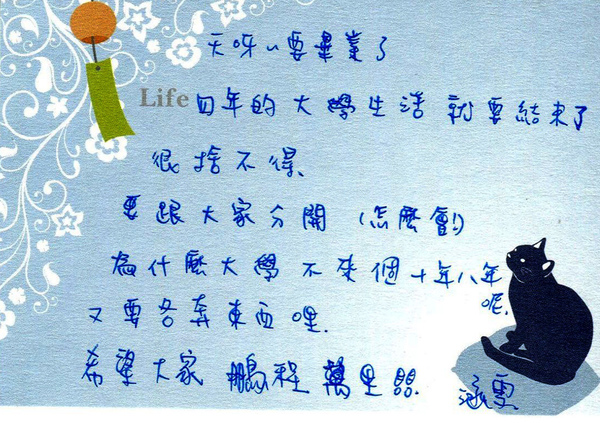 天呀~要畢業了
Life 四年的大學生活就要結束了
很捨不得
要跟大家分開(怎麼會)
為什麼大學不來個十年八年呢.
又要各奔東西哩.
希望大家鵬程萬里
涵雯